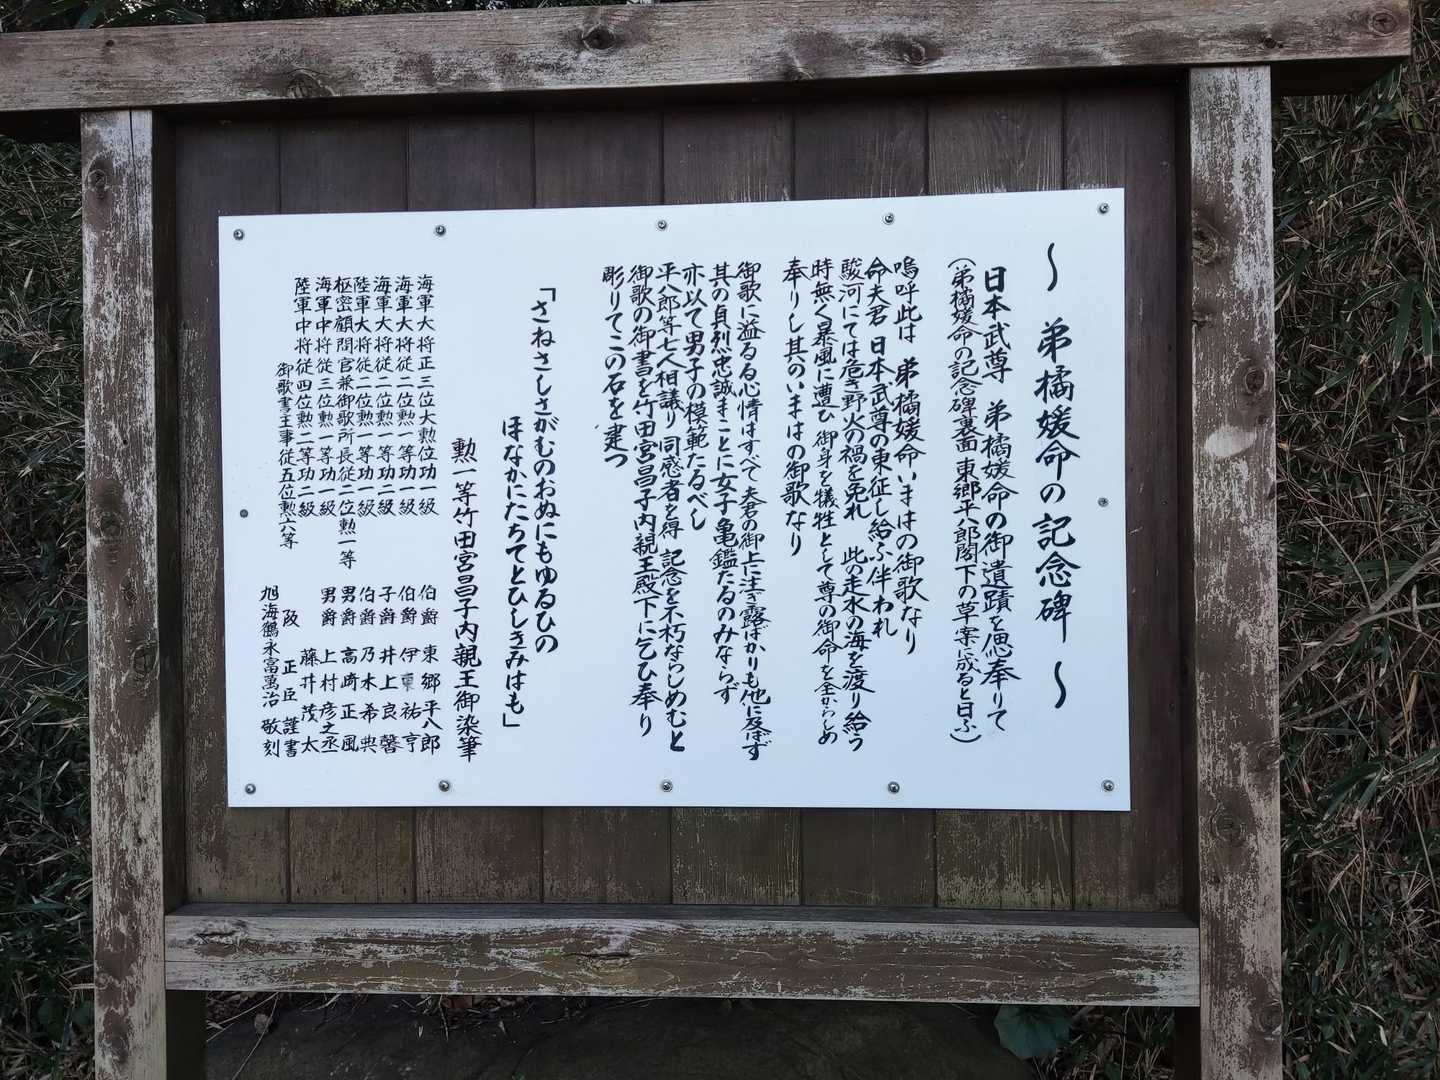 ～弟橘媛命の記念碑～
日本武尊 弟橘媛命の御遺蹟を偲奉りて
(弟橘媛命の記念碑裏面 東郷平八郎閣下の草案に成ると曰ふ)
嗚呼此は 弟橘媛命いまはの御歌なり
命夫君 日本武尊の東征し給ふ伴われ
駿河にては危き野火の禍を免れ 此の走水の海を渡り給う
時無く暴風に遭ひ 御身を犠牲として尊の御命を全からしめ
奉りし其のいまはの御歌なり
御歌に溢るる心情はすべて夫君の御上に注き露ばかりも他に及ばず
其の貞烈忠誠まことに女子亀鑑たるのみならず
亦以て男子の模範たるべし
平八郎等七人相議り 同感者を得 記念を不朽ならしめむと
御歌の御書を竹田宮昌子内親王殿下に乞ひ奉り
彫りてこの石を建つ
「さねさしさがむのおぬにもゆるひの
ほなかにたちてとひしきみはも」
勲一等竹田宮昌子内親王御染筆
海軍大将正三位大勲位功一級 伯爵 東郷平八郎
海軍大将従二位勲一等功一級 伯爵 伊東祐亨
海軍大将従二位勲一等功二級 子爵 井上良馨
陸軍大将従二位勲一等功一級 伯爵 乃木希典
枢密顧問官兼御歌所長従二位勲一等 男爵 高崎正風
海軍中将従三位勲一等功一級 男爵 上村彦之丞
陸軍中将従四位勲二等功二級 藤井茂太
御歌書主事従五位勲六等 阪正臣謹書
旭海鶴永富萬治 敬刻